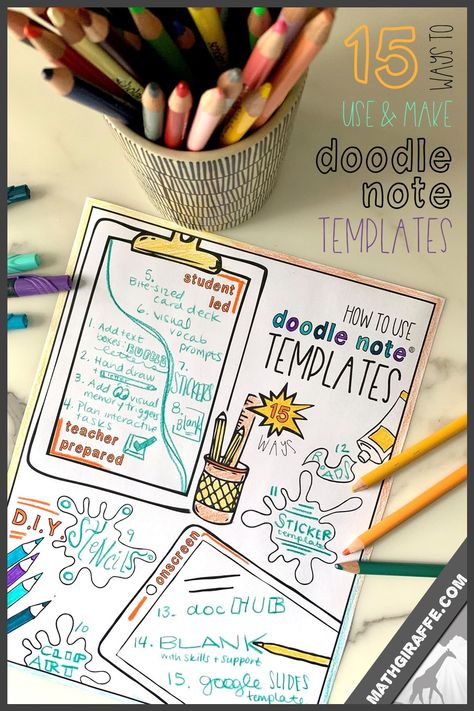 15
WAYS TO
USE & MAKE
doodle
note
TEMPLATES
HOW TO USE
doodle note®
TEMPLATES
15
WAYS
student
led
5.
Bite-sized
card deck
6. visual
vocab
prompts
7.
STICKERS
8.
Blank
1. Add text
boxes: BUBBLE
letters
2. Hand draw
+
3. Add visual
memory triggers
4. Plan interactive
tasks
teacher
prepared
12
11
STICKER
template
D.I.Y.
9
STENCILS
10
CLIP
ART
onscreen
13. doc HUB
14. BLANK
with skills + support
15. google SLIDES
template
MATHGIRAFFE.COM